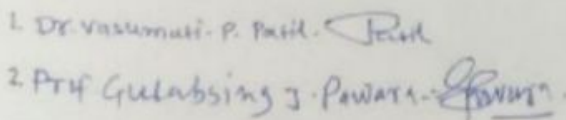 1. Dr. Vasumati. P. Patil. Patil
2. Prof Gulabsing J. Pawara.